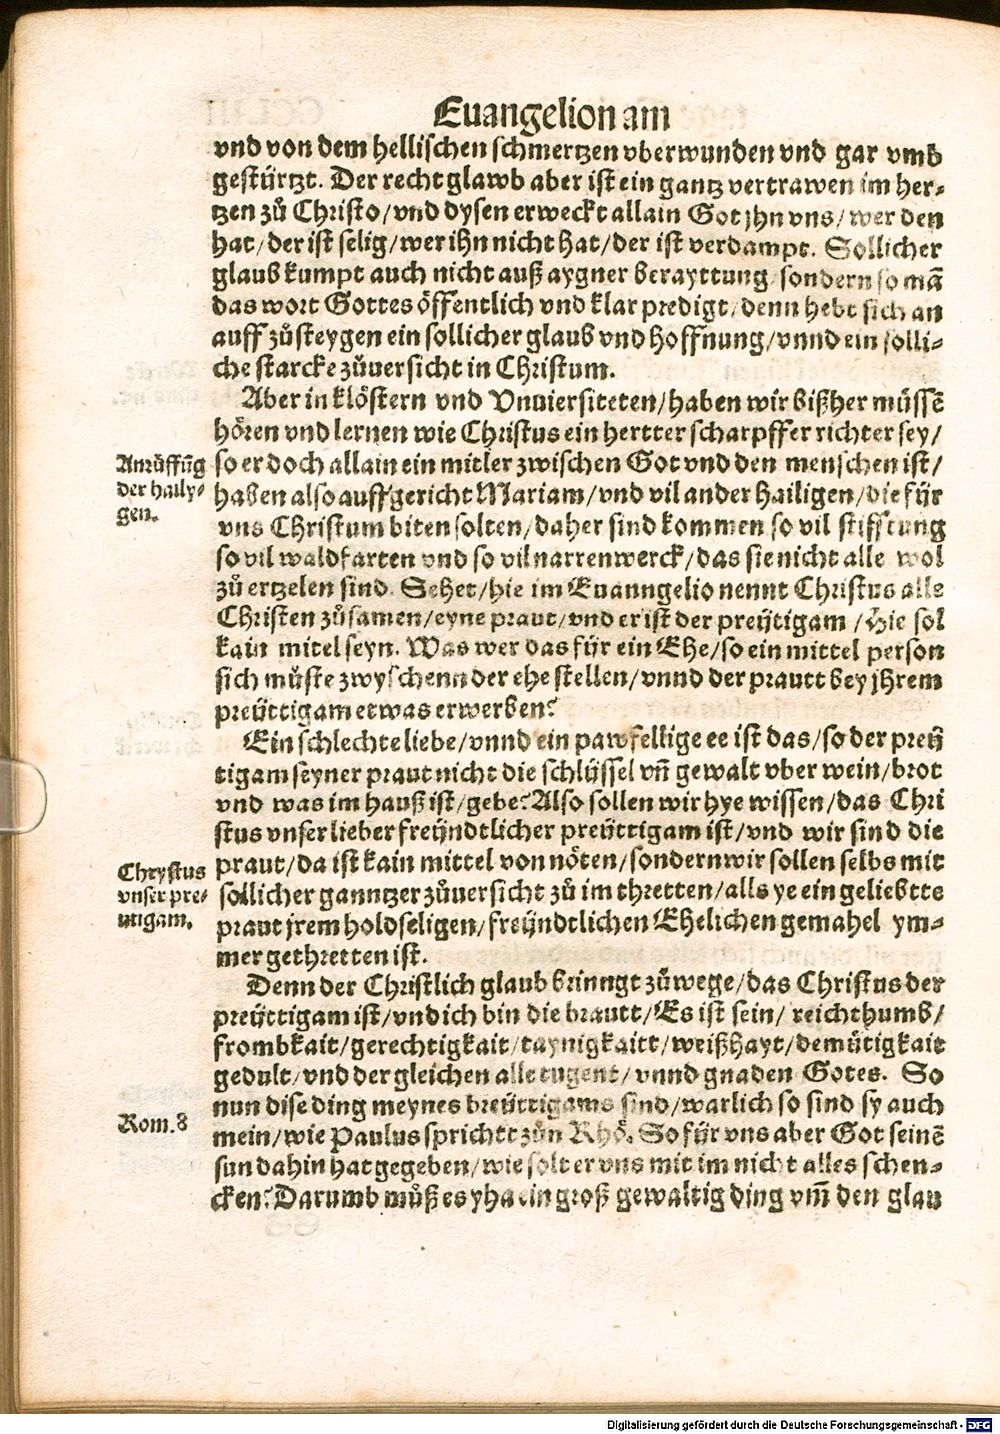 Euangelion am
vnd von dem hellischen schmertzen vberwunden vnd gar vmb
gestürtzt. Der recht glawb aber ist ein gantz vertrawen im her⸗
tzen zů Christo/vnd dysen erweckt allain Got jhn vns/wer den
hat/der ist selig/wer ihn nicht hat/der ist verdampt. Sollicher
glaub kumpt auch nicht auß aygner berayttung/sondern so mā
das wort Gottes öffentlich vnd klar predigt/denn hebt sich an
auff zůsteygen ein sollicher glaub vnd hoffnung/vnnd ein solli⸗
che starcke zůuersicht in Christum.
Aber in klöstern vnd Vnuiersiteten/haben wir bißher müssē
hören vnd lernen wie Christus ein hertter scharpffer richter sey/
Anrůffūg
der haily⸗
gen.
so er doch allain ein mitler zwischen Got vnd den menschen ist/
haben also auffgericht Mariam/vnd vil ander Hailigen/die fÿr
vns Christum biten solten/daher sind kommen so vil stifftung
so vil waldfarten vnd so vil narrenwerck/das sie nicht alle wol
zů ertzelen sind. Sehet/hie im Euanngelio nennt Christus alle
Christen zůsamen/eyne praut/vnd er ist der preÿtigam/Hie sol
kain mitel seyn. Was wer das fÿr ein Ehe/so ein mittel person
sich můste zwyschenn der ehe stellen/vnnd der prautt bey jhrem
preÿttigam etwas erwerben?
Ein schlechte liebe/vnnd ein pawfellige ee ist das/so der preÿ
tigam seyner praut nicht die schlÿssel vn̄ gewalt vber wein/brot
vnd was im hauß ist/gebe? Also sollen wir hye wissen/das Chri
stus vnser lieber freÿndtlicher preÿttigam ist/vnd wir sind die
Chrystus
vnser pre⸗
ÿtigam.
praut/da ist kain mittel von nöten/sondern wir sollen selbs mit
sollicher ganntzer zůuersicht zů im thretten/alls ye ein geliebtte
praut jrem holdseligen/freÿndtlichen Ehelichen gemahel ym⸗
mer gethretten ist.
Denn der Christlich glaub brinngt zůwege/das Christus der
preÿttigam ist/vnd ich bin die brautt/Es ist sein/reichthumb/
frombkait/gerechtigkait/raynigkaitt/weißhayt/demütigkait
gedult/vnd der gleichen alle tugent/vnnd gnaden Gotes. So
nun dise ding meynes breÿttigams sind/warlich so sind sy auch
Rom.8
mein/wie Paulus sprichtt zůn Rhö. So fÿr vns aber Got seinē
sun dahin hat gegeben/wie solt er vns mit im nicht alles schen⸗
cken? Darumb můß es yha ein groß gewaltig ding vm̄ den glau
Digitalisierung gefördert durch die Deutsche Forschungsgemeinschaft - DFG